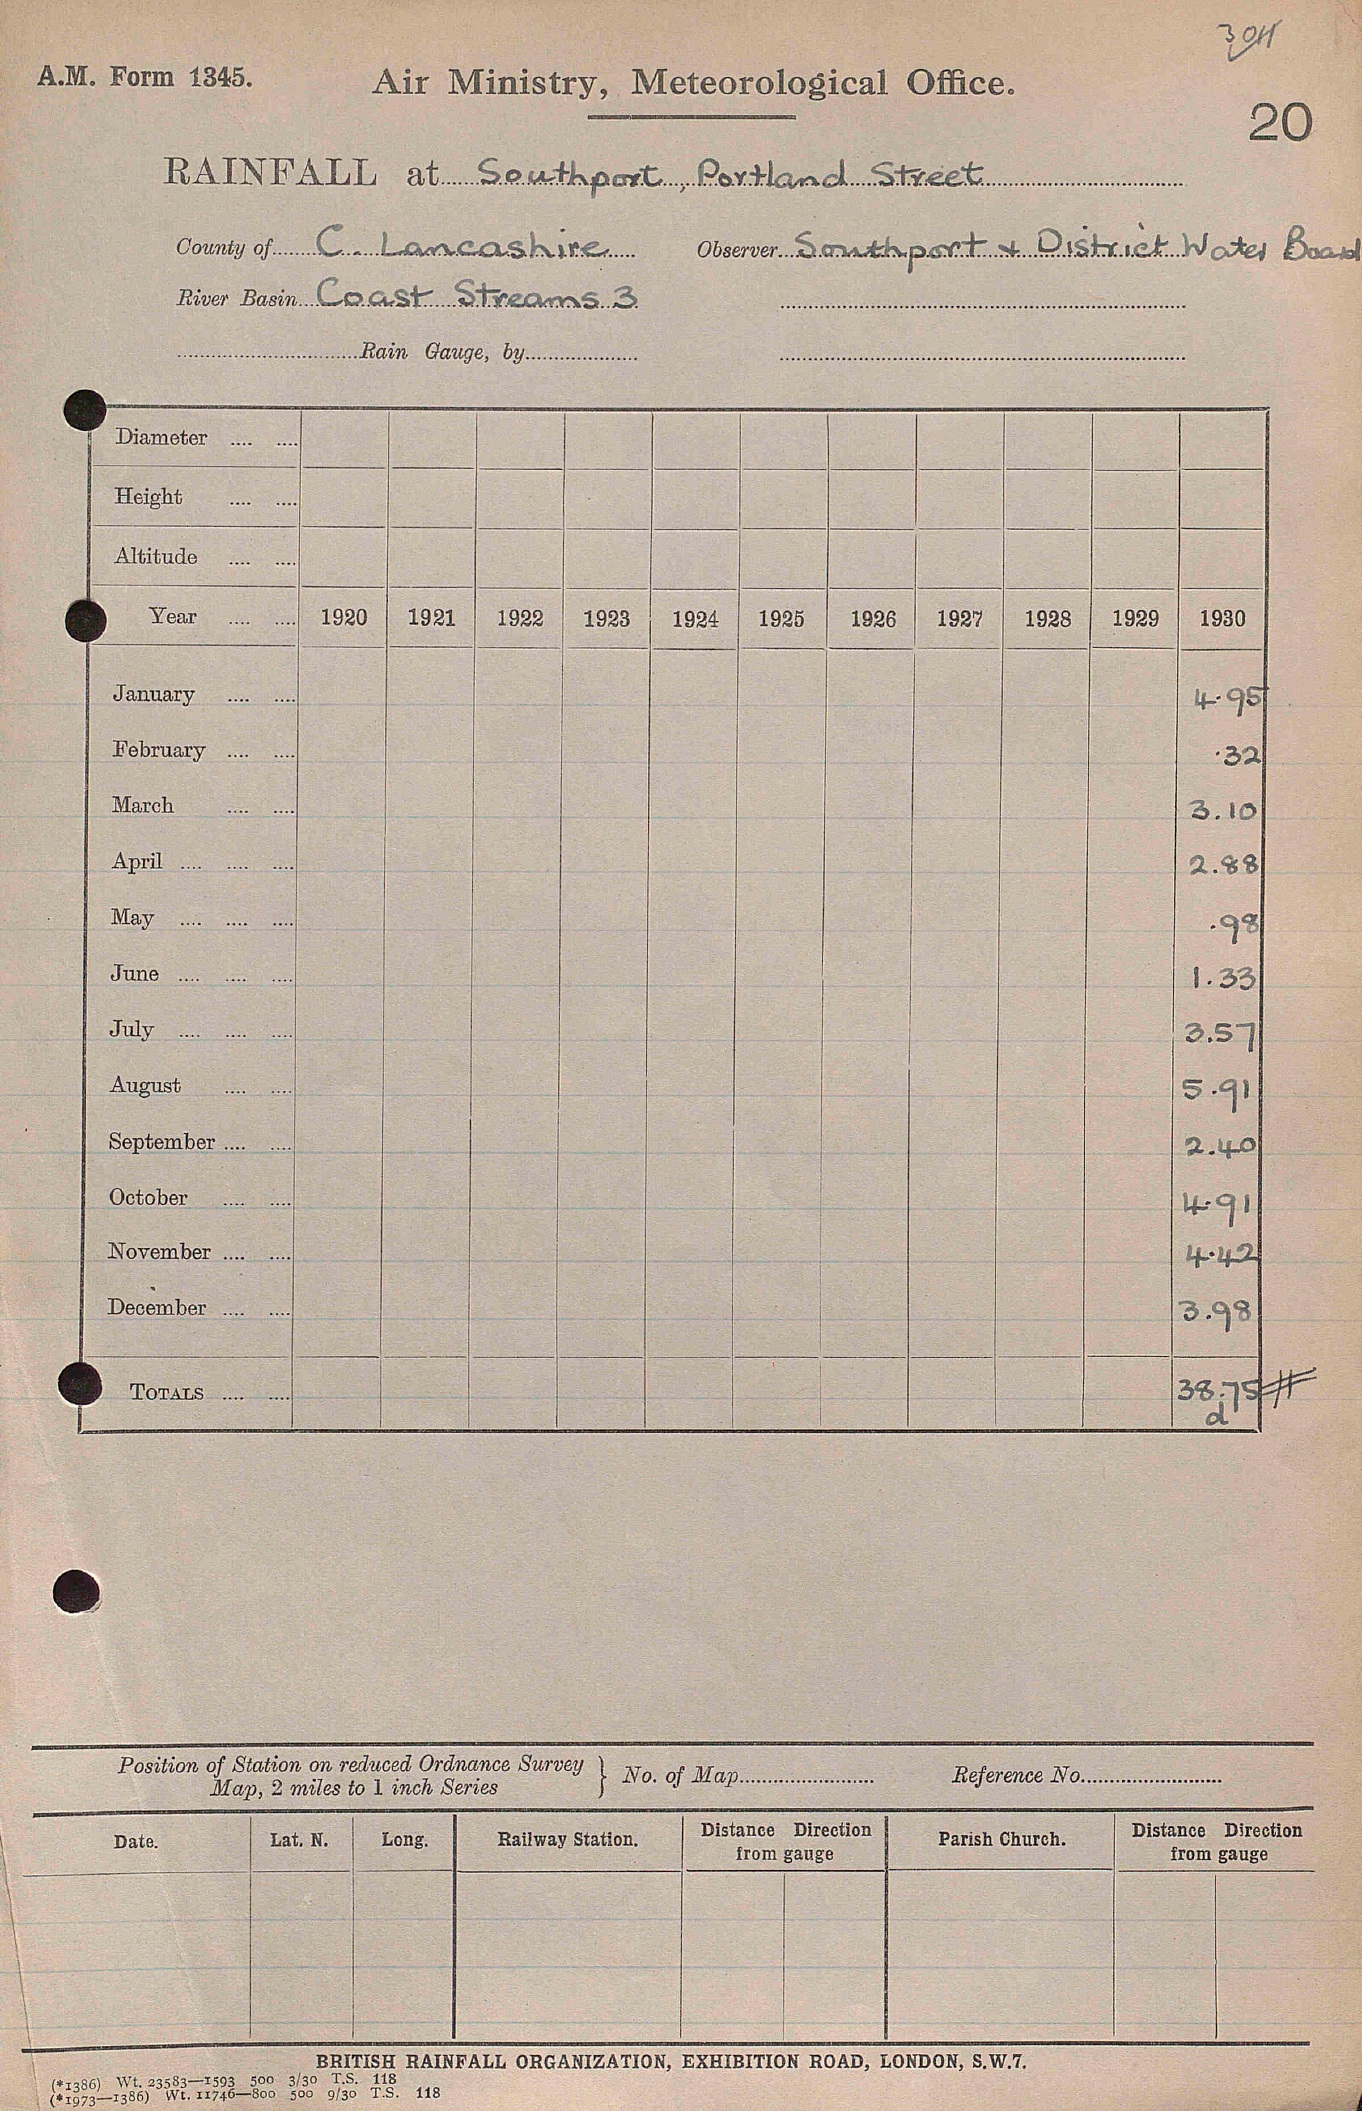 3011
A.M. Form 1345. Air Ministry, Meteorological Office.
20
RAINFALL at Southport, Portland Street
County of C. Lancashire Observer Southport & District Water Board
River Basin Coast Streams 3
Rain Gauge, by
Diameter
Height
Altitude
Year 1920 1921 1922 1923 1924 1925 1926 1927 1928 1929 1930
January 4.95
February .32
March 3.10
April 2.88
May .98
June 1.33
July 3.57
August 5.91
September 2.40
October 4.91
November 4.42
December 3.98
TOTALS 38.75 #
d
Position of Station on reduced Ordnance Survey
Map, 2 miles to 1 inch Series } No. of Map Reference No.
Date. Lat. N. Long. Railway Station. Distance Direction from gauge Parish Church. Distance Direction from gauge
BRITISH RAINFALL ORGANIZATION, EXHIBITION ROAD, LONDON, S.W.7.
(*1386) Wt. 23583—1593 500 3/30 T.S. 118
(*1973—1386) Wt. 11746—800 500 9/30 T.S. 118